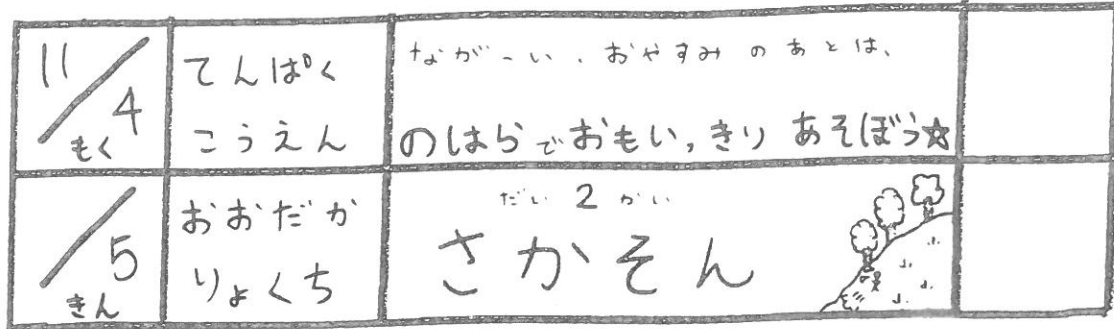 11/4
もく
てんぱく
こうえん
ながーい、おやすみ の あとは、
のはらでおもいっきり あそぼう☆
/5
きん
おおだか
りょくち
だい 2 かい
さかそん